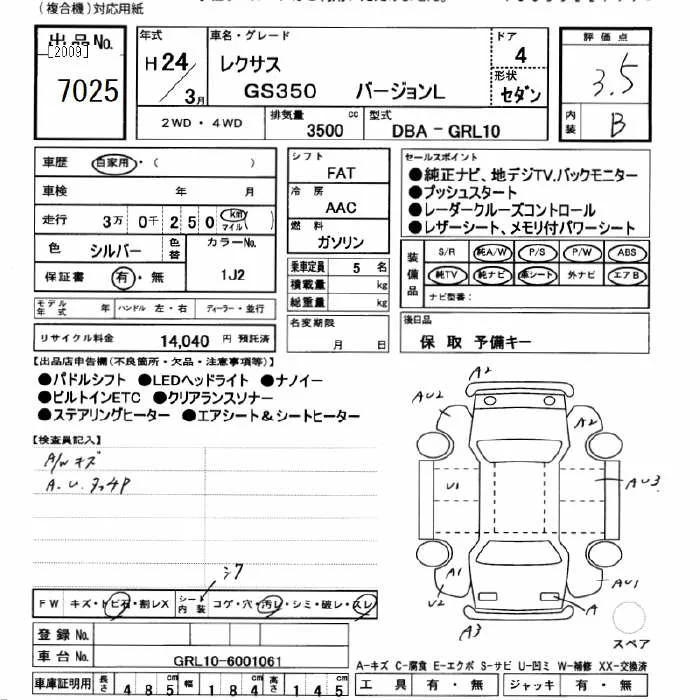 (複合機)対応用紙
出品No.
[2009]
7025
年式
H24/3月
車名・グレード
レクサス
GS350 バージョンL
ドア
4
形状
セダン
評価点
3.5
内装
B
2WD・4WD
排気量
3500 cc
型式
DBA-GRL10
車歴 自家用・( )
車検 年 月
走行 3万 0千 250 (km マイル)
色 シルバー 色替
カラーNo. 1J2
保証書 有・無
シフト
FAT
冷房
AAC
燃料
ガソリン
乗車定員 5 名
積載量 kg
総重量 kg
セールスポイント
●純正ナビ、地デジTV.バックモニター
●プッシュスタート
●レーダークルーズコントロール
●レザーシート、メモリ付パワーシート
装備品
S/R 純A/W P/S P/W ABS
純TV 純ナビ 革シート 外ナビ エアB
ナビ型番:
モデル年式 年 ハンドル 左・右 ディーラー・並行
リサイクル料金 14,040 円 預託済
名変期限
月 日
後日品
保 取 予備キー
【出品店申告欄(不良箇所・欠品・注意事項等)】
●パドルシフト ●LEDヘッドライト ●ナノイー
●ビルトインETC ●クリアランスソナー
●ステアリングヒーター ●エアシート&シートヒーター
【検査員記入】
A/W キズ
A.U.
シワ
FW キズ・トビ石・割レX
シート内装 コゲ・穴・汚レ・シミ・破レ・スレ
登録No.
車台No.
GRL10-6001061
車庫証明用 長さ 485 cm 幅 184 cm 高さ 145 cm
A2
AU2
A2
U1
AU3
A1
U2
AU1
A
A3
スペア
A-キズ C-腐食 E-エクボ S-サビ U-凹ミ W-補修 XX-交換済
工具 有・無 ジャッキ 有・無